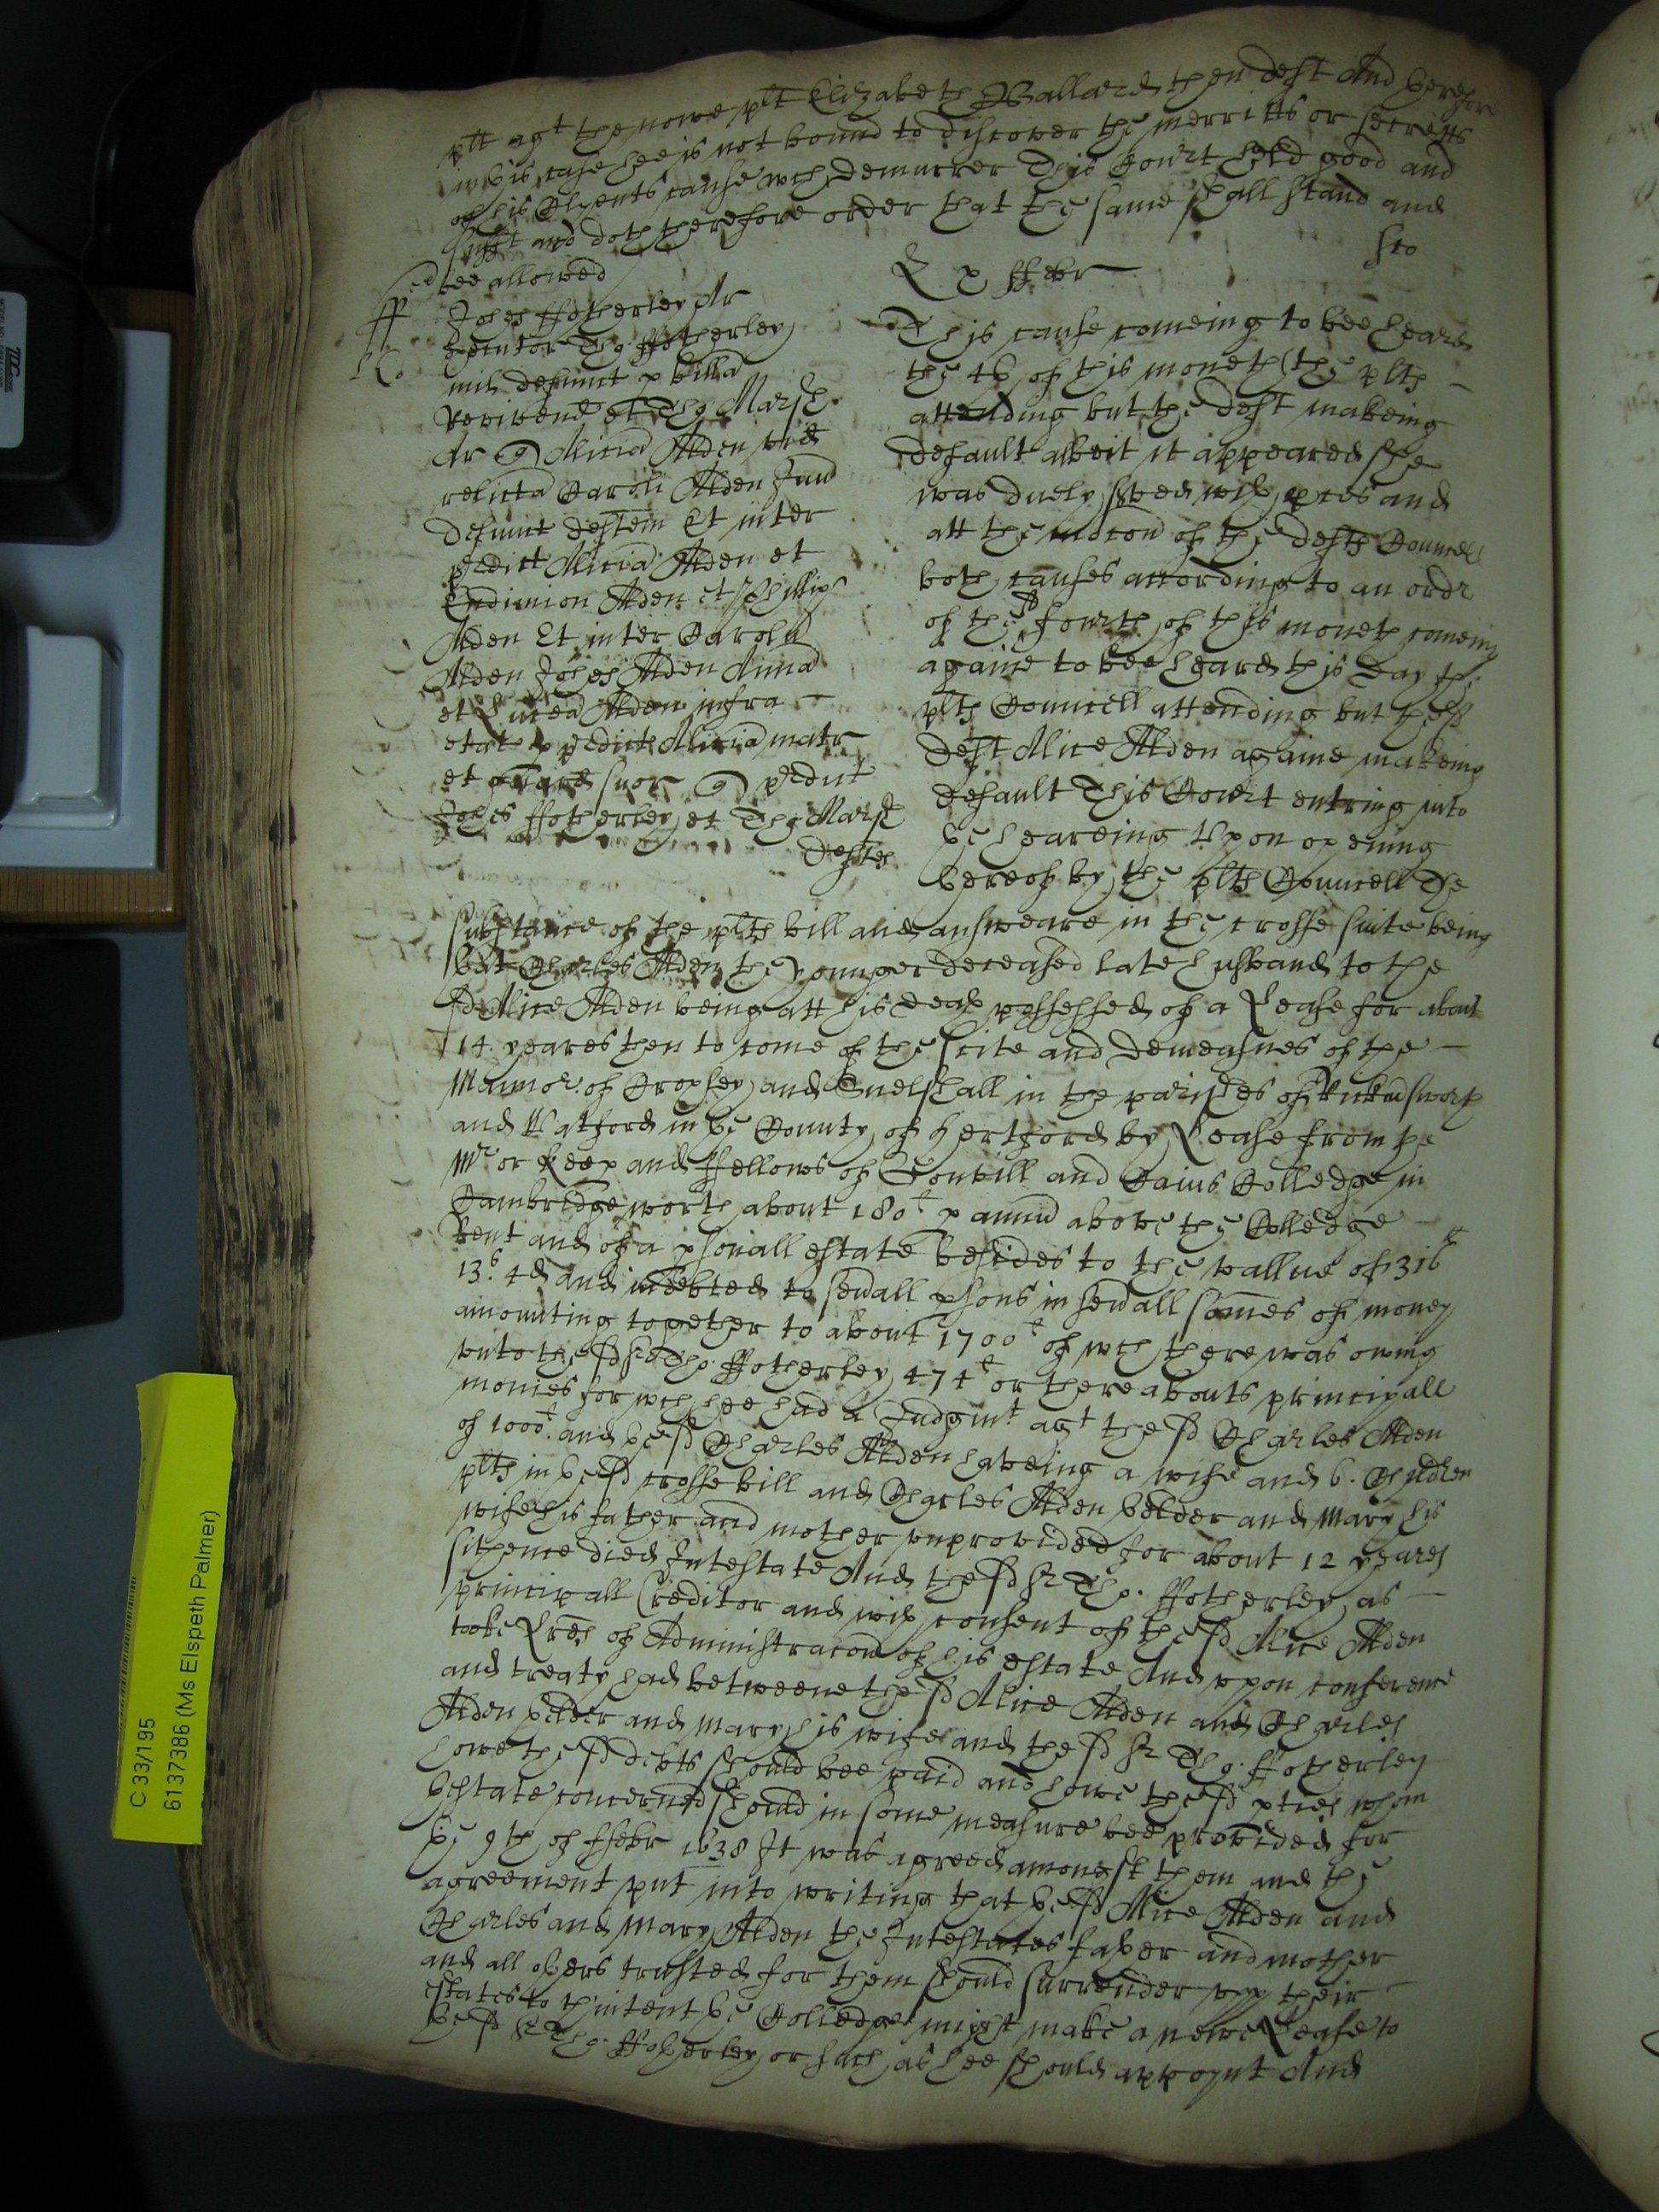 plt agt the nowe plt Elizabeth Ballard then deft And therefore
in this case hee is not bound to discover the merritts or secretts
of his Clyents cause wch demurrer This Court held good and
sufft and doth therefore order that the same shall stand and
bee allowed
Joh'es ffotherley Ar
executor Tho: ffotherley
mil defunct p billa
Revivend et Tho: Marsh
Ar Alicia Alden vid
relicta Caroli Alden Jun
defunct deftem Et inter
predict Alicia Alden et
Endimion Alden et Phillip
Alden Et inter Carolu
Alden Joh'es Alden Anna
et Alden infra
etate p predict Alicia matr
et suor predict
Joh'es ffotherley et Tho: Marsh
deftes
ffebr
This cause comeing to bee heard
the of this moneth the plts
attending but the deft makeing
default albeit it appeared she
was duely served with pces and
att the mocon of the defts Councell
both causes according to an ordr
of the fourth of this moneth comeing
againe to bee heard this day the
plts Councell attending but the sd
deft Alice Alden againe makeing
default This Court entring into
the heareing Upon opening
thereof by the plts Councell The
substance of the plts bill and answeare in the crosse suite being
that Charles Alden the younger deceased late husband to the
sd Alice Alden being att his death possessed of a Lease for about
14 yeares then to come of the Scite and demeasnes of the
Mannor of Croxley and Snelshall in the parishes of Rickmsworth
and Watford in the County of Hertford by Lease from the
Mr or Keep and ffellows of Gonvill and Caius Colledge in
Cambridge worth about 180£ p annu above the Colledge
Rent and of a psonall estate besides to the vallue of 316£
13s 4d and indebted to sevall psons in sevall somes of money
amounting together to about 1700£ of wch there was owing
unto the sd Sr Tho: ffotherley 474£ or thereabouts principall
monies for wch hee had a Judgmt agt the sd Charles Alden
of 1000£ and the sd Charles Alden haveing a wife and 6 Children
plts in the sd crosse bill and Charles Alden thelder and Mary his
wife his father and mother unprovided for about 12 yeares
sithence died Intestate And the sd Sr Tho: ffotherley as
principall Creditor and with consent of the sd Alice Alden
tooke Lres of Administracon of his estate And upon conference
and treaty had betweene the sd Alice Alden and Charles
Alden thelder and Mary his wife and the sd Sr Tho: ffotherley
howe the sd debts should bee paid and howe the sd pties whom
thestate concerned should in some measure bee provided for
the 9th of ffebr 1638 It was agreed amongst them and the
agreement put into writing that the sd Alice Alden and
Charles and Mary Alden the Intestates father and mother
and all others trusted for them should surrender upp their
estates to th'intent the Colledge might make a newe Lease to
the sd Sr Tho: ffotherley or such as hee should appoynt And
C 33/195
6137386 (Ms Elspeth Palmer)